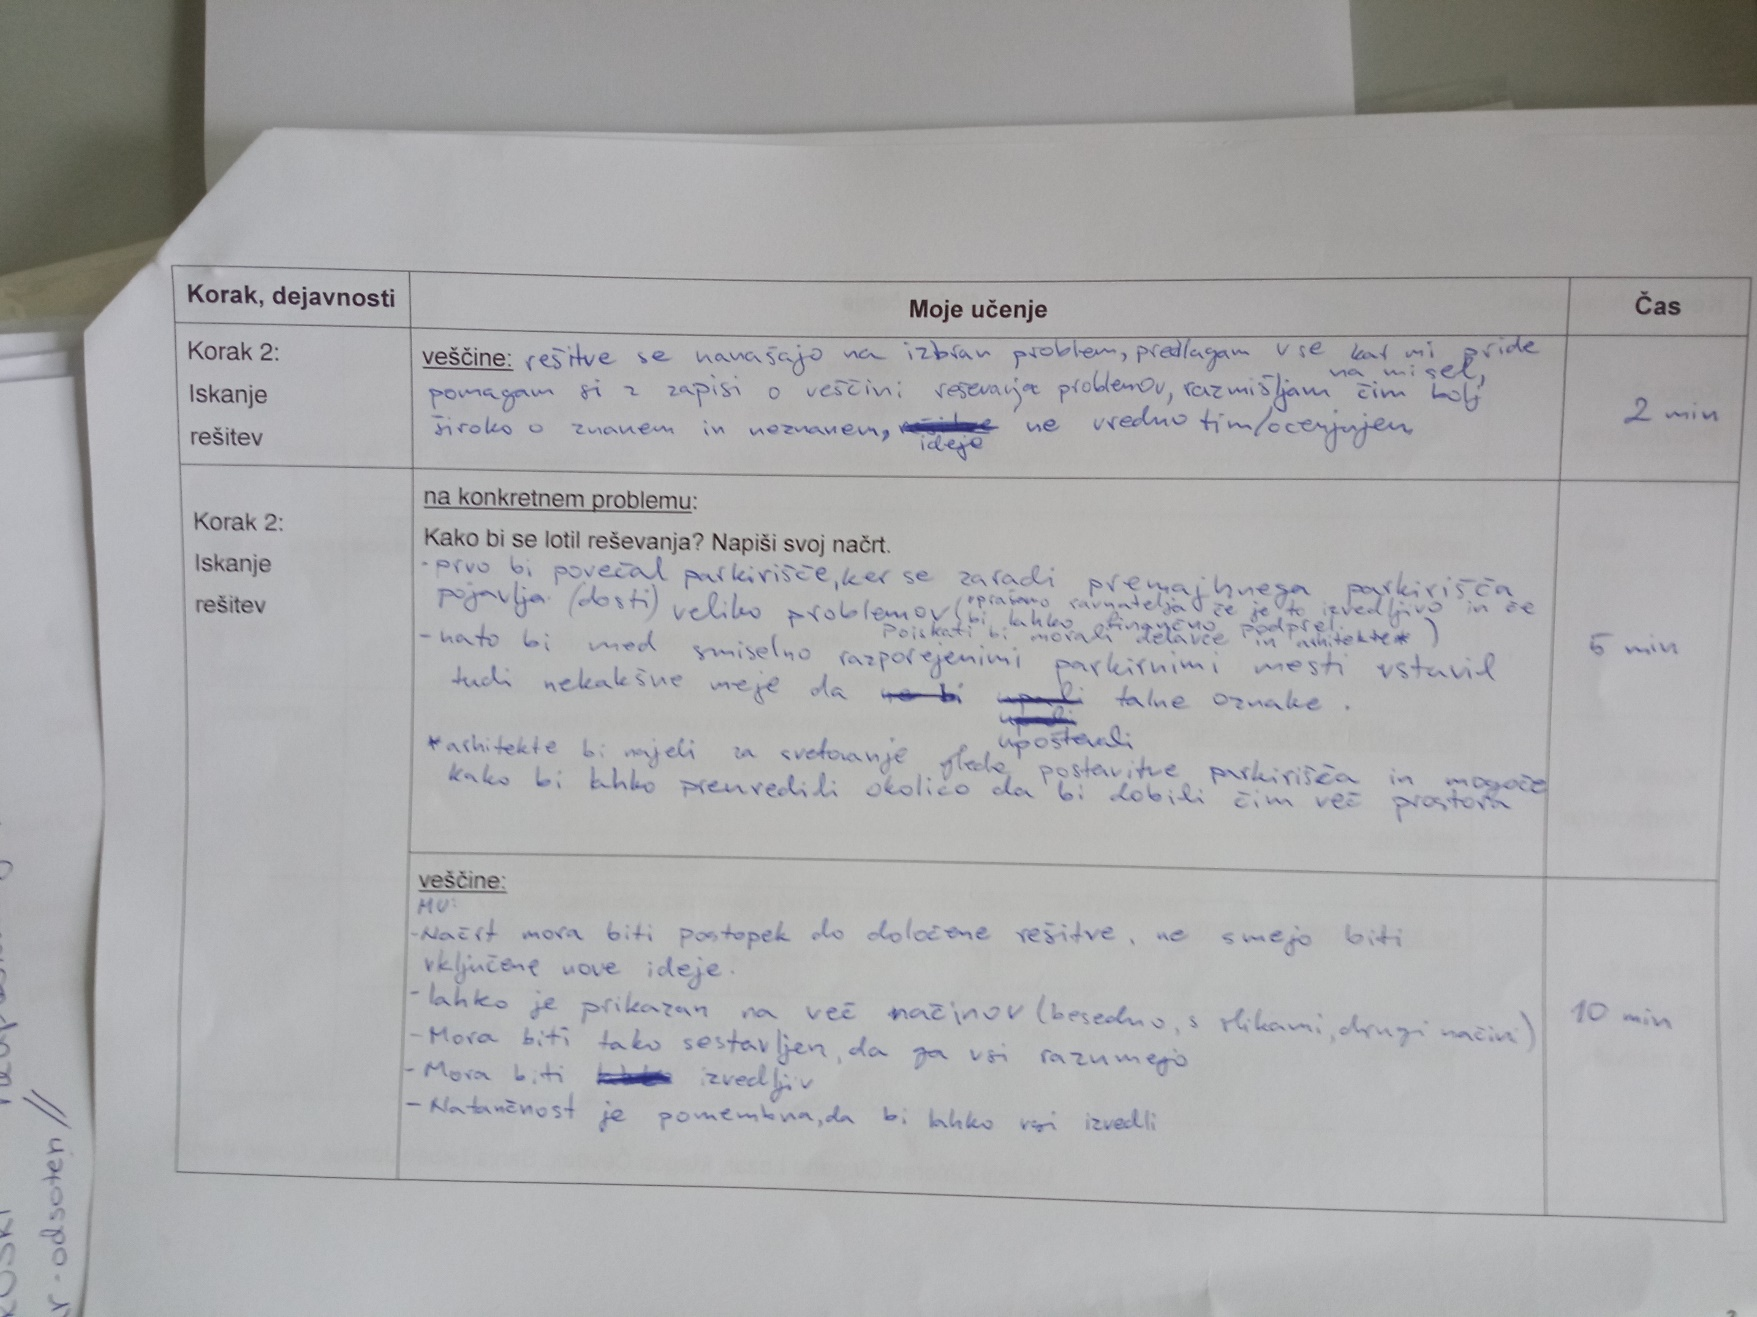 Korak, dejavnosti
Moje učenje
Čas
Korak 2:
Iskanje
rešitev
veščine: rešitve se nanašajo na izbran problem, predlagam vse kar mi pride
na misel,
pomagam si z zapisi o veščini reševanja problemov, razmišljam čim bolj
široko o znanem in neznanem, ne vrednotim/ocenjujem
ideje
2 min
Korak 2:
Iskanje
rešitev
na konkretnem problemu:
Kako bi se lotil reševanja? Napiši svoj načrt.
- prvo bi povečal parkirišče, ker se zaradi premajhnega parkirišča
pojavlja (dosti) veliko problemov (vprašamo ravnatelja če je to izvedljivo in če
bi lahko finančno podprl.
Poiskati bi morali delavce in arhitekte*)
- nato bi med smiselno razporejenimi parkirnimi mesti vstavil
tudi nekakšne meje da talne oznake.
upoštevali
*arhitekte bi najeli za svetovanje glede postavitve parkirišča in mogoče
kako bi lahko preuredili okolico da bi dobili čim več prostora
5 min
veščine:
MU:
- Načrt mora biti postopek do določene rešitve, ne smejo biti
vključene nove ideje.
- lahko je prikazan na več načinov (besedno, s slikami, drugi načini)
- Mora biti tako sestavljen, da ga vsi razumejo
- Mora biti izvedljiv
- Natančnost je pomembna, da bi lahko vsi izvedli
10 min
r-odsoten //